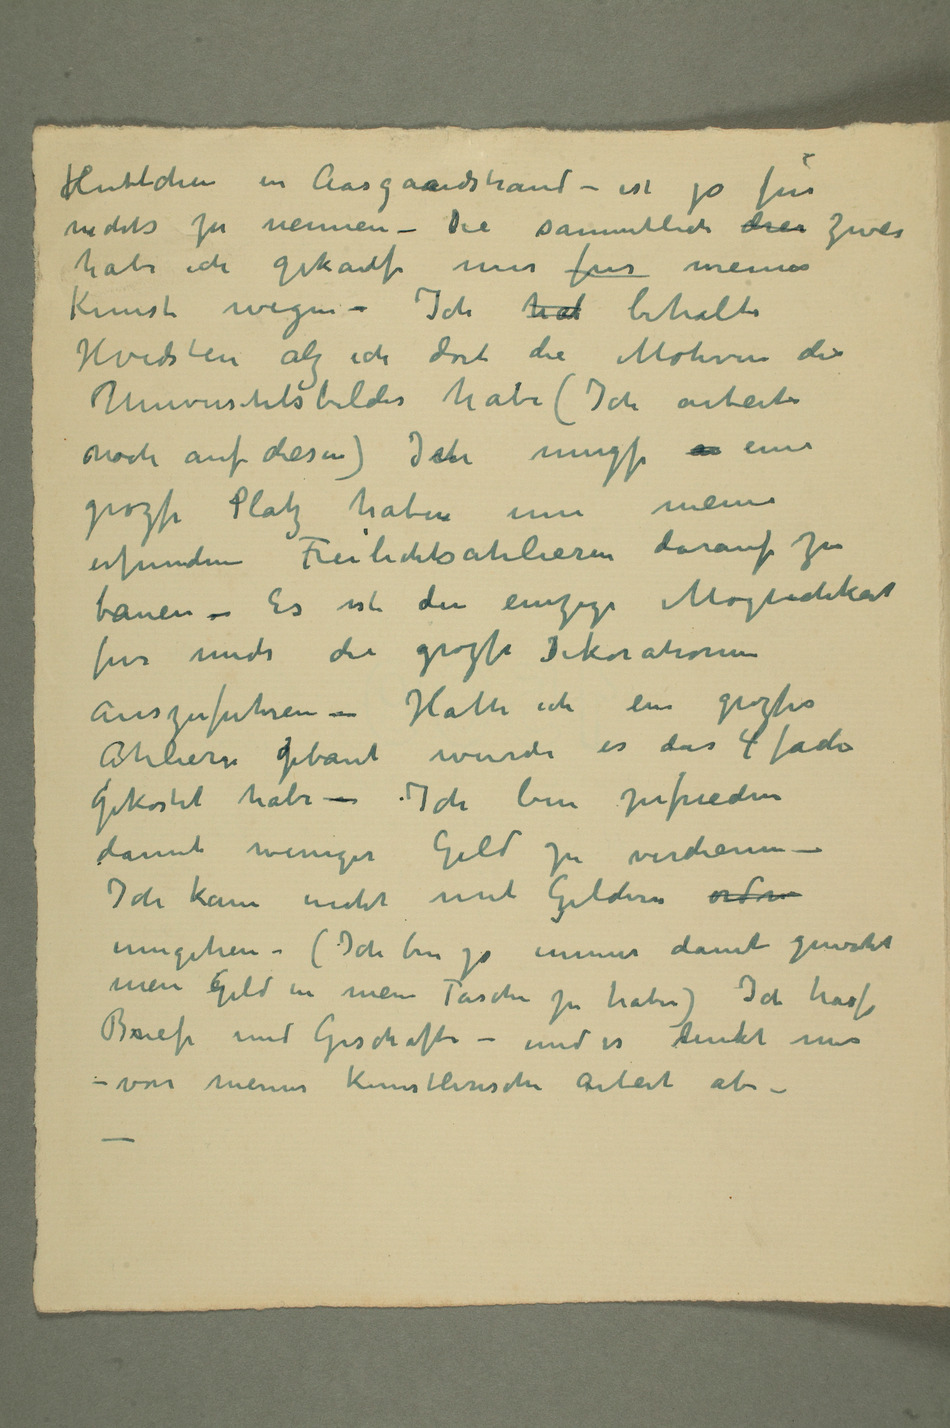 Hüttchen in Aasgaardstrand – ist ja für
nichts zu nennen – Die sammtlich drei zwei
habe ich gekauft nur fur meine
Kunst wegen – Ich hat behalte
Hvidsten alz ich dort die Motiven die
Universitetsbilder habe (Ich arbeite
noch auf diesen) Ich muzß eine
grozße Platz haben um meine
erfundene Freilichtsatelieren darauf zu
bauen – Es ist die einzige Moglichkeit
fur mich die grozße Dekorationen
auszufuhren – Hatte ich ein grozßes
Ateliers gebaut wurde es das 4 fache
gekostet habe – Ich bin zufrieden
damit weniger Geld zu verdienen –
Ich kann nicht mit Geldern
umgehen – (Ich bin ja immer damit gewohnt
mein Geld in mein Tasche zu haben) Ich hasse
Briefe und Geschäfte – und es lenkt mir
– von meiner kunstlerische Arbeit ab –
—